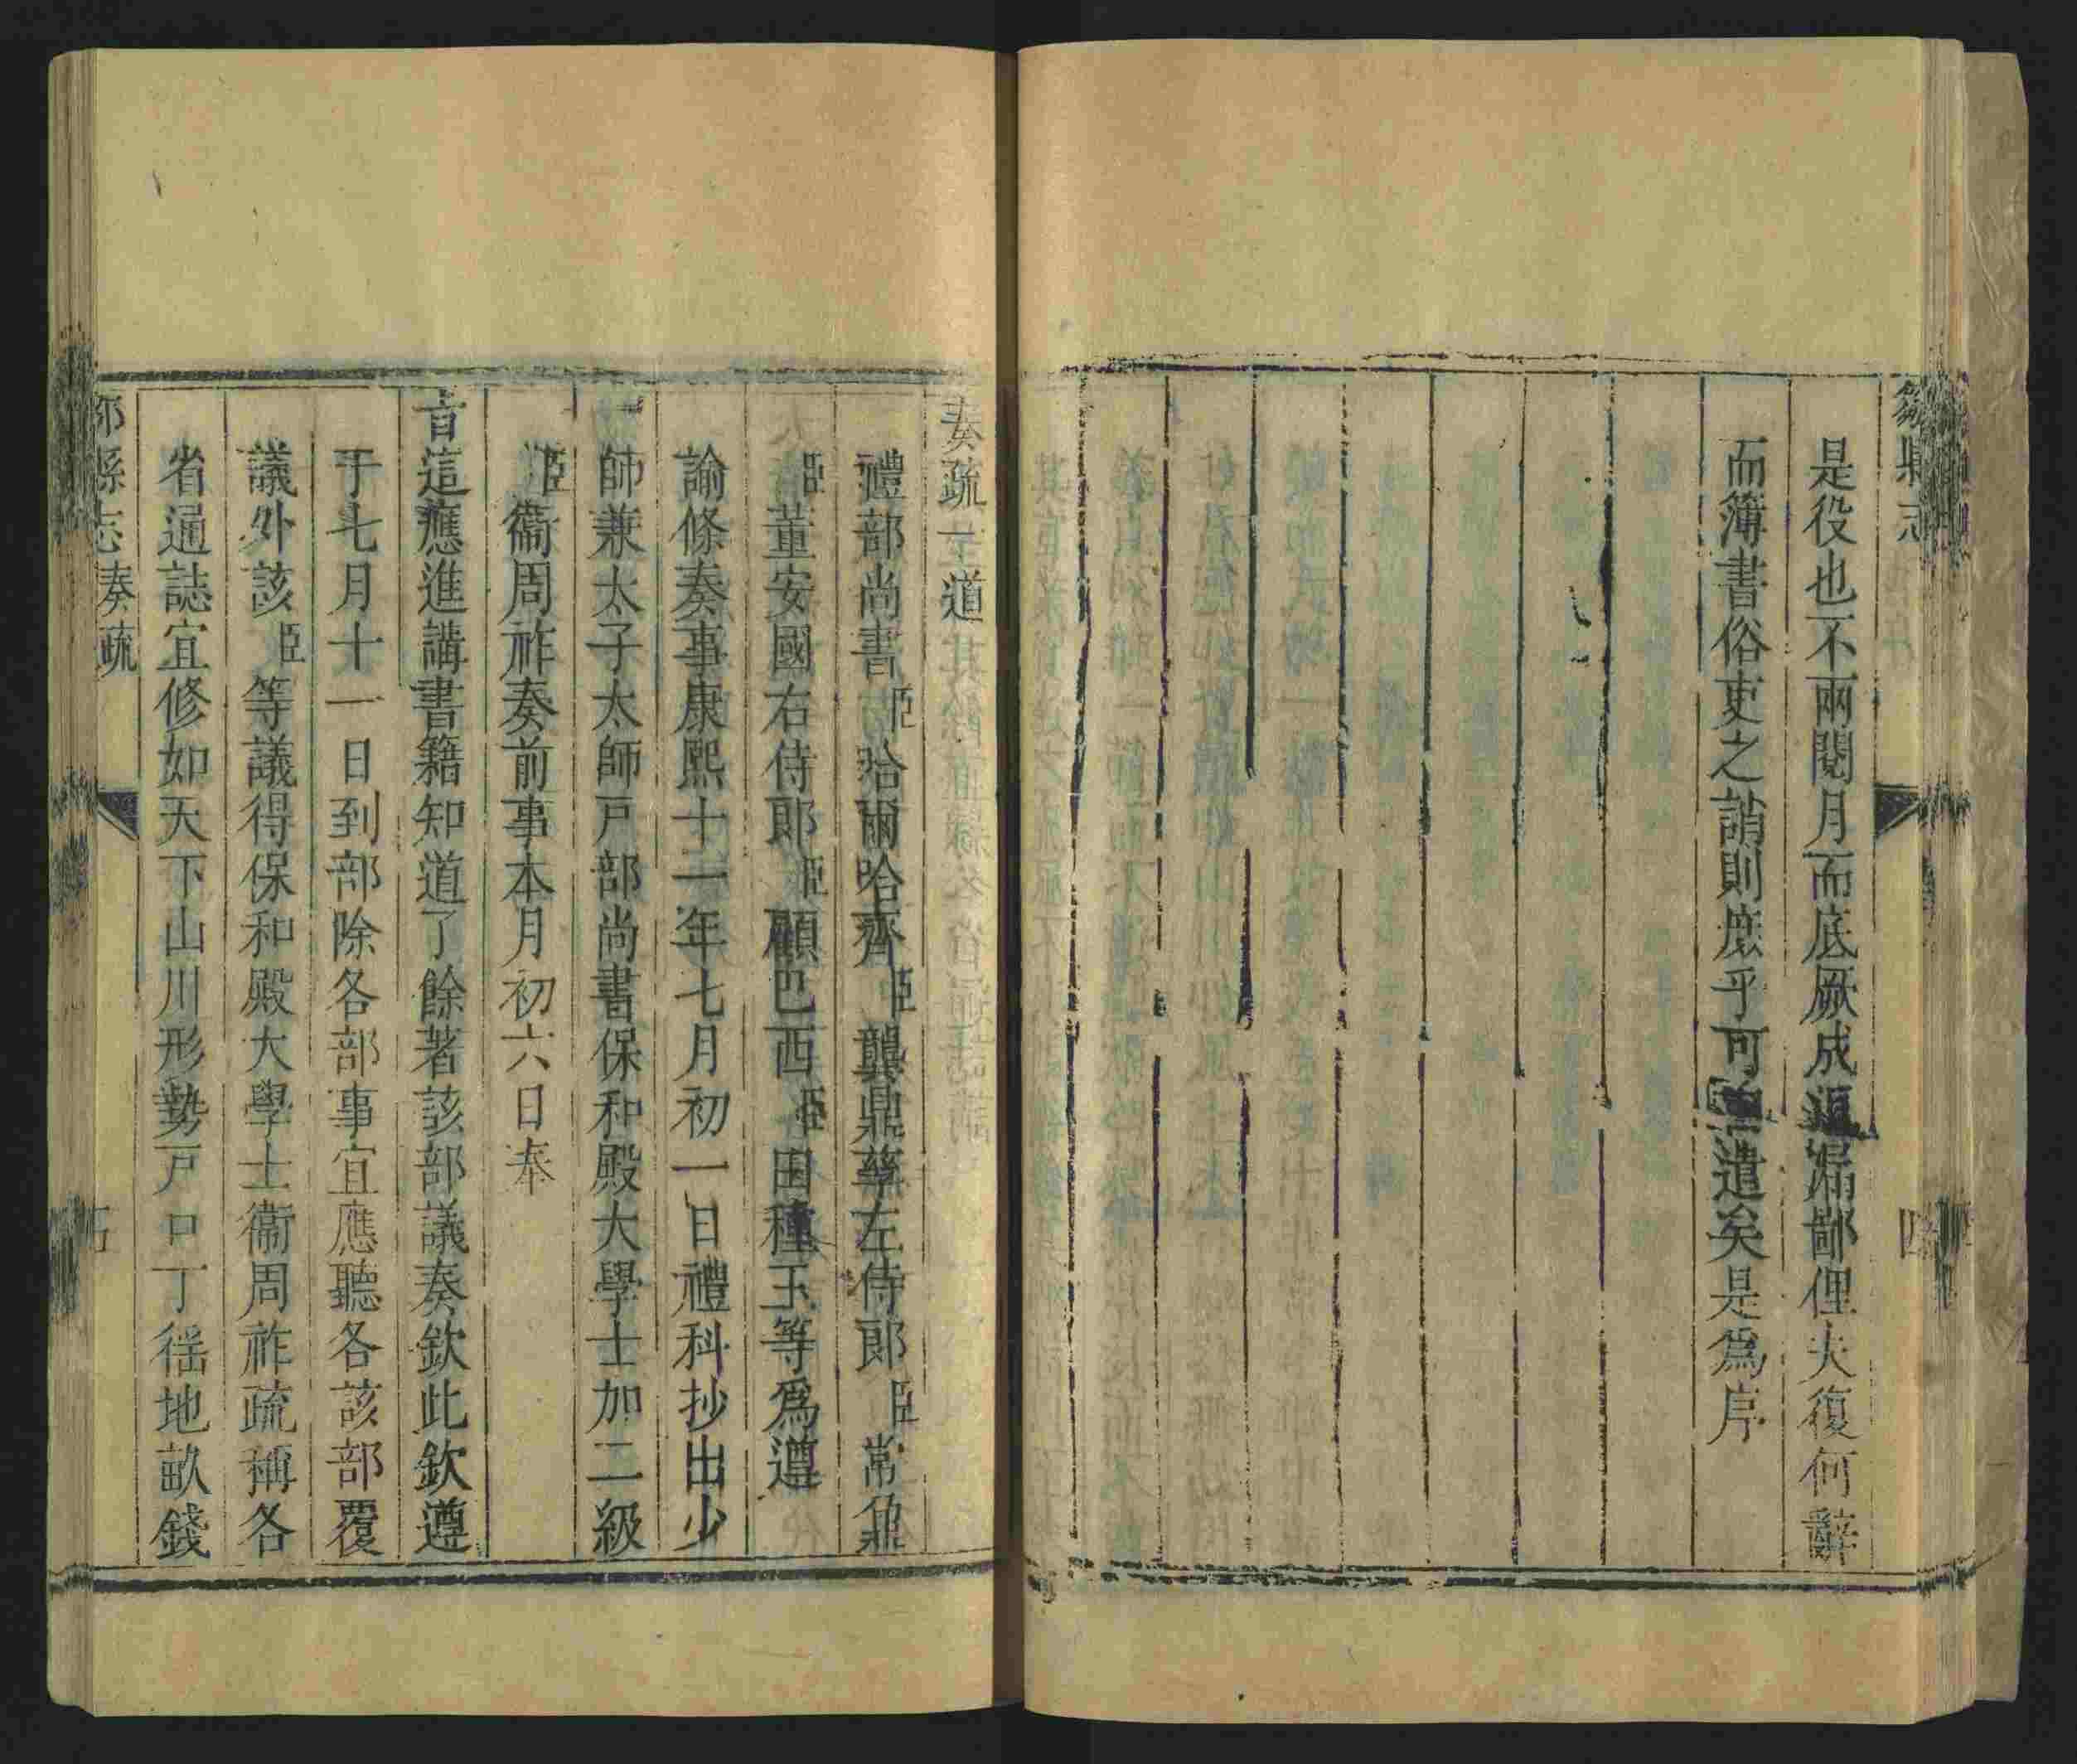 縣志
四
是役也不兩閱月而底厥成遺漏鄙俚夫復何辭
而簿書俗吏之誚則庶乎可遣矣是爲序
奏疏一道
禮部尚書臣哈爾哈齊臣龔鼎孳左侍郎臣常鼐
臣董安國右侍郎臣顧巴西臣田種玉等爲遵
諭條奏事康熙十一年七月初一日禮科抄出少
師兼太子太師戸部尚書保和殿大學士加二級
臣衞周祚奏前事本月初六日奉
旨這應進講書籍知道了餘著該部議奏欽此欽遵
于七月十一日到部除各部事宜應聽各該部覆
議外該臣等議得保和殿大學士衞周祚疏稱各
省通誌宜修如天下山川形勢戸口丁徭地畝錢
縣志奏疏